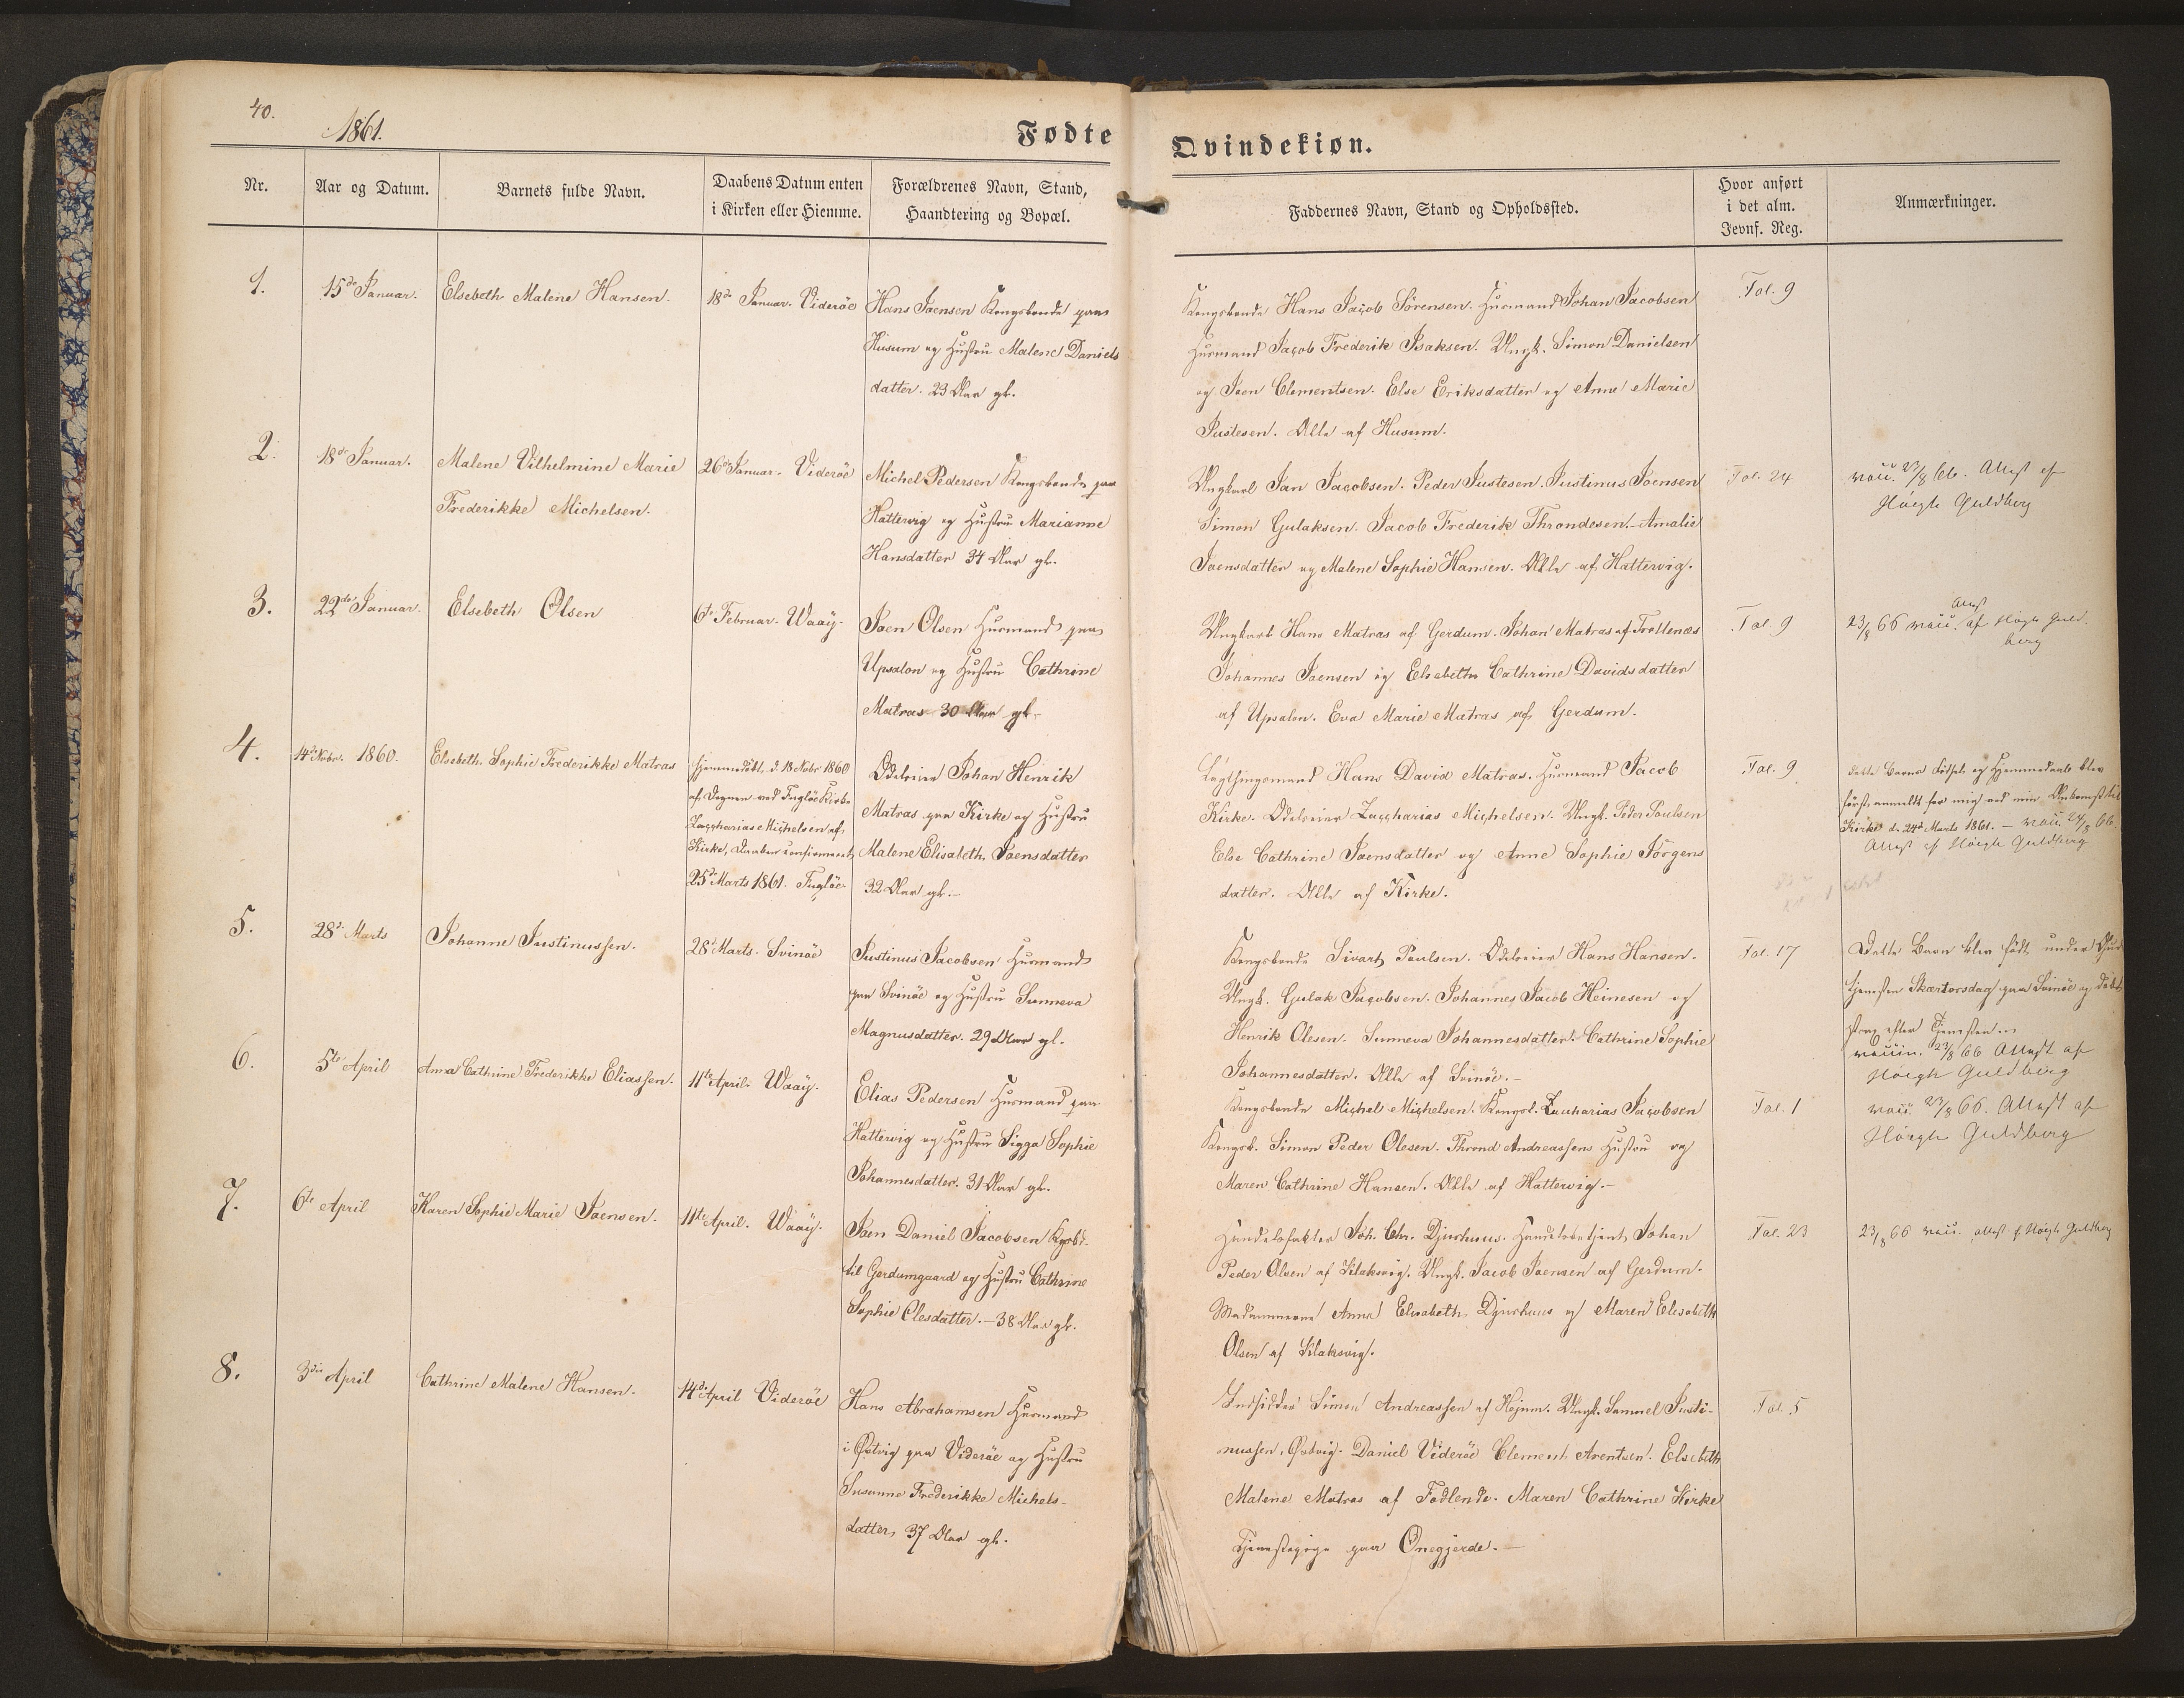 40.
1861.
Fødte
Qvindekiøn.
Nr.
Aar og Datum.
Barnets fulde Navn.
Daabens Datum enten
i Kirken eller Hiemme.
Forældrenes Navn, Stand,
Haandtering og Bopæl.
Faddernes Navn, Stand og Opholdssted.
Hvor anført
i det alm.
Jevnf. Reg.
Anmærkninger.
1.
15de Januar.
Elsebeth Malene Hansen.
18de Januar. Viderøe
Hans Joensen Kongsbonde paa
Husum og Hustru Malene Daniels
datter. 23 Aar gl.
Kongsbonde Hans Jacob Sörensen. Huusmand Johan Jacobsen
Huusmand Jacob Frederik Isaksen. Ungk. Simon Danielsen
og Joen Clementsen. Else Eriksdatter og Anna Marie
Justesen. Alle af Husum.
Fol. 9
2.
18de Januar.
Malene Vilhelmine Marie
Frederikke Michelsen.
26de Januar. Viderøe
Michel Pedersen Kongsbonde paa
Hattervig og Hustru Marianne
Hansdatter 34 Aar gl.
Ungkarl Jan Jacobsen. Peder Justesen. Justinus Joensen
Simon Gulaksen. Jacob Frederik Throndesen. Amalie
Joensdatter og Malene Sophie Hansen. Alle af Hattervig.
Fol. 24
vacc. 23/8 66. Attest af
Höegh Guldberg
3.
22de Januar.
Elsebeth Olsen
6te Februar. Waaÿ.
Joen Olsen Huusmand paa
Upsalon og Hustru Cathrine
Matras 30 Aar gl.
Ungkarl Hans Matras af Gerdum. Johan Matras af Trøllenæs
Johannes Joensen og Elsebeth Cathrine Davidsdatter
af Upsalon. Eva Marie Matras af Gerdum.
Fol. 9
Attest
23/8 66 vacc. af Högh Guld
berg
4.
14de Nobr. 1860.
Elsebeth Sophie Frederikke Matras
Hjemmedöbt d. 18 Nobr 1860
af Degnen ved Fugløe Kirke
Zaccharias Michelsen af
Kirke, Daaben confirmeret
25de Marts 1861. Fugløe.
Odelseier Johan Henrik
Matras paa Kirke og Hustru
Malene Elisabeth Joensdatter
32 Aar gl.
Lagthingsmand Hans David Matras. Huusmand Jacob
Kirke. Odelseier Zaccharias Michelsen. Ungk. Peder Poulsen
Else Cathrine Joensdatter og Anne Sophie Jörgens
datter. Alle af Kirke.
Fol. 9
dette Barns Födsel og Hjemmedaab blev
först anmeldt for mig ved min Ankomst til
Kirke d. 24de Marts 1861. – vacc. 24/8 66.
Attest af Höegh Guldberg
5.
28de Marts
Johanne Justinussen.
28de Marts. Svinöe
Justinus Jacobsen Huusmand
paa Svinöe og Hustru Sunneva
Magnusdatter. 29 Aar gl.
Kongsbonde Sivart Poulsen. Odelseier Hans Hansen.
Ungk. Gulak Jacobsen. Johannes Jacob Heinesen og
Henrik Olesen. Sunneva Johannesdatter. Cathrine Sophie
Johannesdatter. Alle af Svinöe.
Fol. 17
Dette Barn blev födt under Guds
tjenesten Skærtorsdag paa Svinöe og döbt
strax efter Tjenesten
vaccin. 23/8 66 Attest af
Höegh Guldberg
6.
5te April
Anna Cathrine Frederikke Eliassen.
11te April. Waaÿ.
Elias Pedersen Huusmand paa
Hattervig og Hustru Sigga Sophie
Johannesdatter. 31 Aar gl.
Kongsbonde Michel Michelsen. Kongsb. Zacharias Jacobsen
Kongsb. Simon Peder Olesen. Thrond Andreassens Hustru og
Maren Cathrine Hansen. Alle af Hattervig.
Fol. 1
vacc. 23/8 66. Attest af
Höegh Guldberg
7.
6te April
Karen Sophie Marie Joensen.
11te April. Waaÿ.
Joen Daniel Jacobsen Kgsbd.
til Gerdumgaard og Hustru Cathrine
Sophie Olesdatter. – 38 Aar gl.
Handelsfaktor Joh. Chr. Djurhuus. Handelsbetjent Johan
Peder Olsen af Klaksvig. Ungk. Jacob Joensen af Gerdum.
Madammerne Anna Elisabeth Djurhuus og Maren Elisabeth
Olsen af Klaksvig.
Fol. 23
23/8 66 vacc. attest af Höegh Guldberg
8.
3die April
Cathrine Malene Hansen.
14de April Viderøe
Hans Abrahamsen Huusmand
i Østvig paa Viderøe og Hustru
Susanne Frederikke Michels-
datter, 37 Aar gl.
Indsidder Simon Andreassen af Hejnum. Ungk. Samuel Justi-
nussen, Østvig. Daniel Viderøe Clement Arentsen. Elsebeth
Malene Matras af Fodlende. Maren Cathrine Kirke
Tjenestepige paa Önegjerde.
Fol. 5